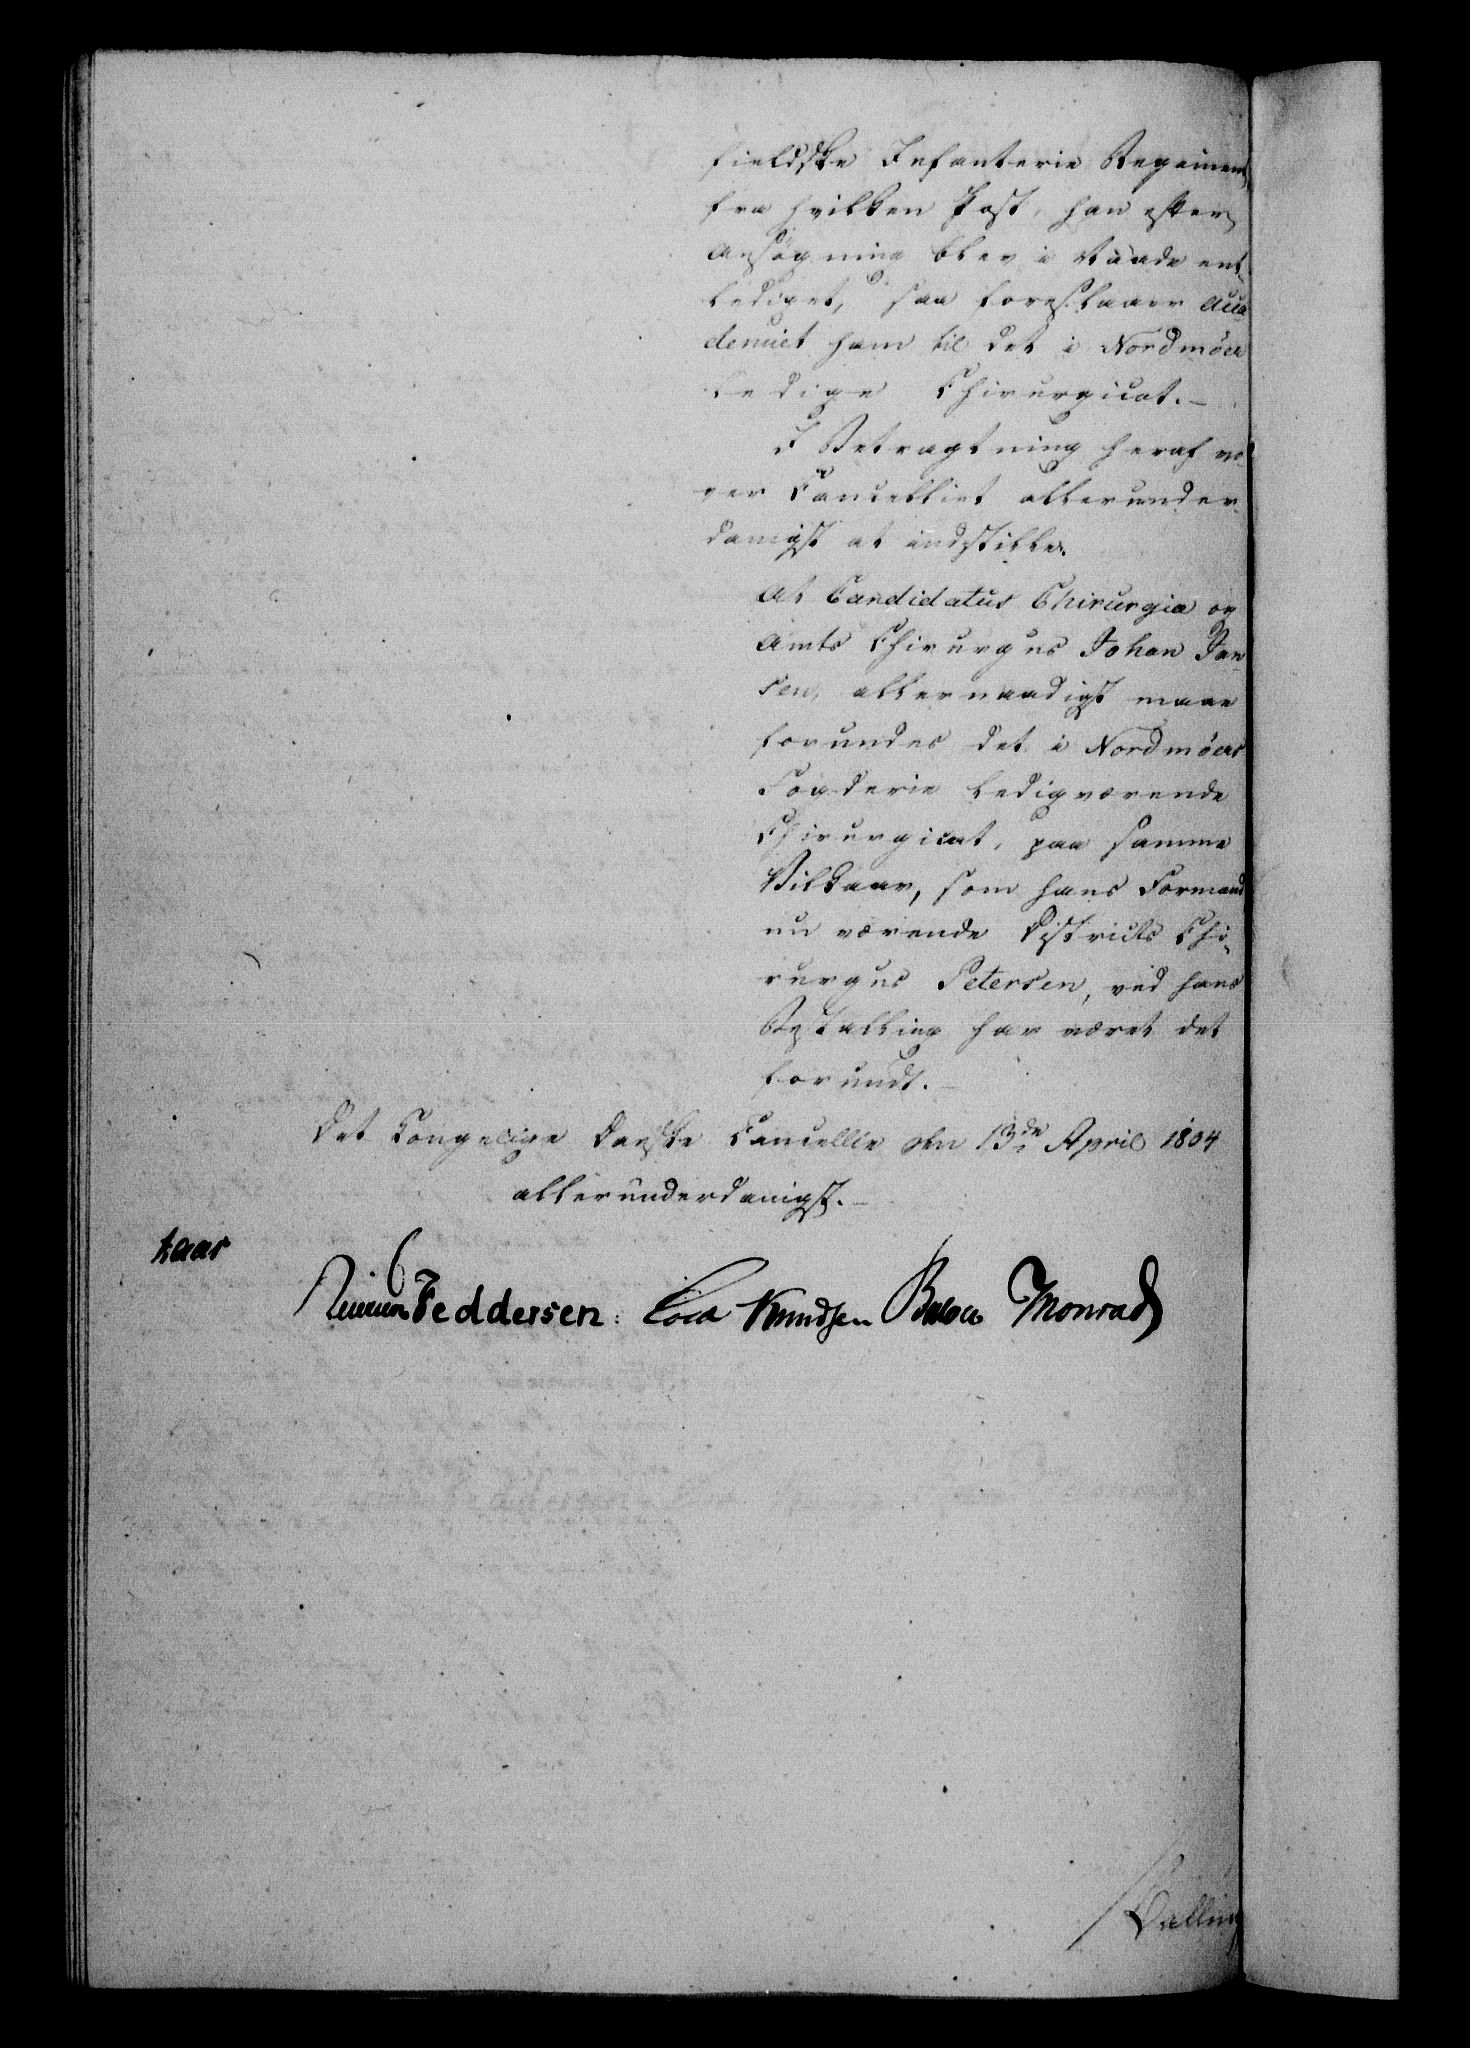 fieldske Infanterie Regiment,
fra hvilken Post, han efter
Ansøgning blev i Naade ent-
lediget, saa foreslaaer Aca-
demiet ham til det i Nordmöer
ledige Chirurgicat.-
I Betragtning heraf vo-
ver Cancelliet allerunder-
danigst at indstille:
At Candidatus Chirurgia og
Amts Chirurgus Johan Jan-
sen, allernaadigst maae
forundes det i Nordmöers
Fogderie ledigværende
Chirurgicat, paa samme
Vilkaar, som hans Formand
nu værende Districts Chi-
rurgus Petersen, ved hans
Bestalling har været det
forundt.-
Det Kongelige Danske Cancellie den 13de April 1804
allerunderdanigst.-
Kaas
Feddersen. Cold Knudsen Bülow Monrad